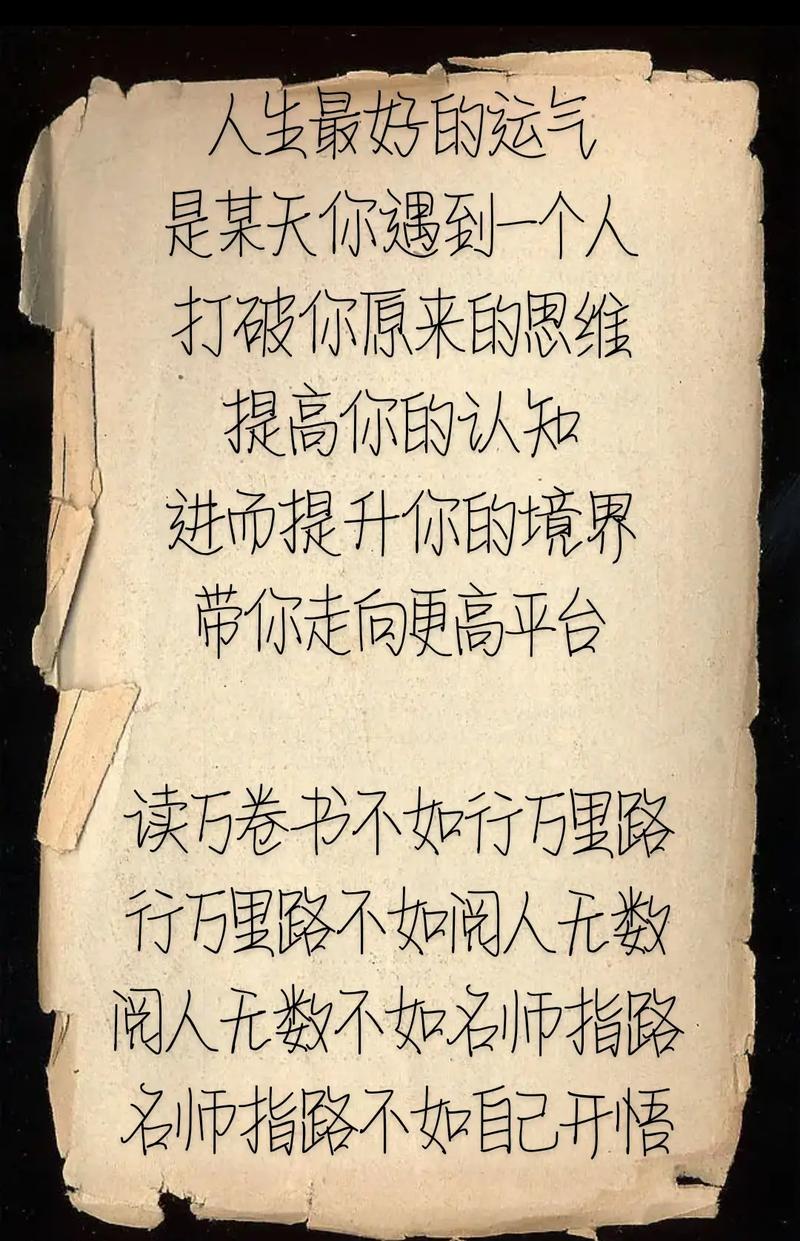 人生最好的运气
是某天你遇到一个人
打破你原来的思维
提高你的认知
进而提升你的境界
带你走向更高平台
读万卷书不如行万里路
行万里路不如阅人无数
阅人无数不如名师指路
名师指路不如自己开悟